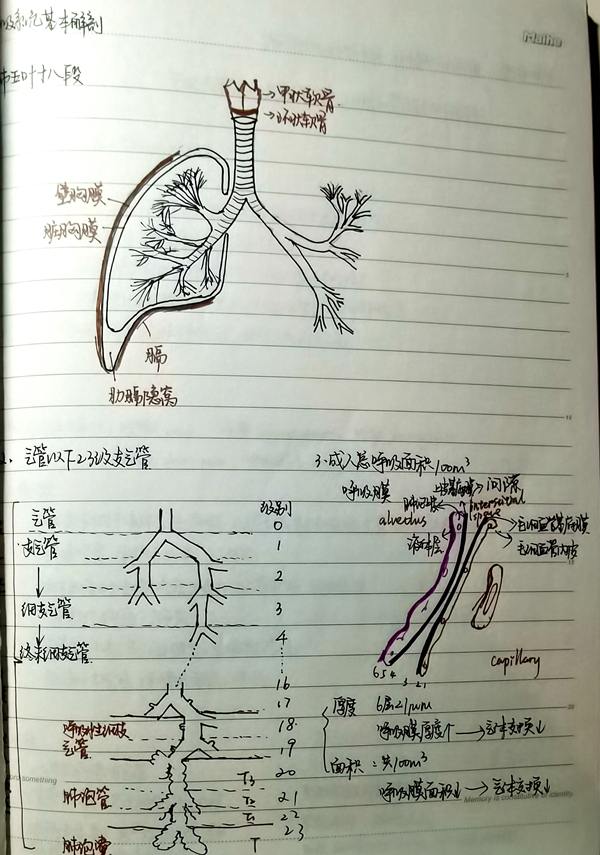 吸系统基本解剖
Maihe
肺五叶十八段
甲状软骨
环状软骨
壁胸膜
脏胸膜
膈
肋膈隐窝
2. 气管以下23级支气管
气管
支气管
细支气管
终末细支气管
呼吸性细支
气管
肺泡管
肺泡囊
级别
0
1
2
3
4
16
17
18
19
T3 20
T2 21
T1 22
T 23
3.成人总呼吸面积100m³
呼吸膜
上皮基底膜
间隙
interstitial
space
alveolus
毛细血管基底膜
毛细血管内皮
capillary
6 5 4 3 2 1
厚度 6层<1μm
呼吸膜厚度↑→气体交换↓
面积:共100m³
呼吸膜面积↓→气体交换↓
something